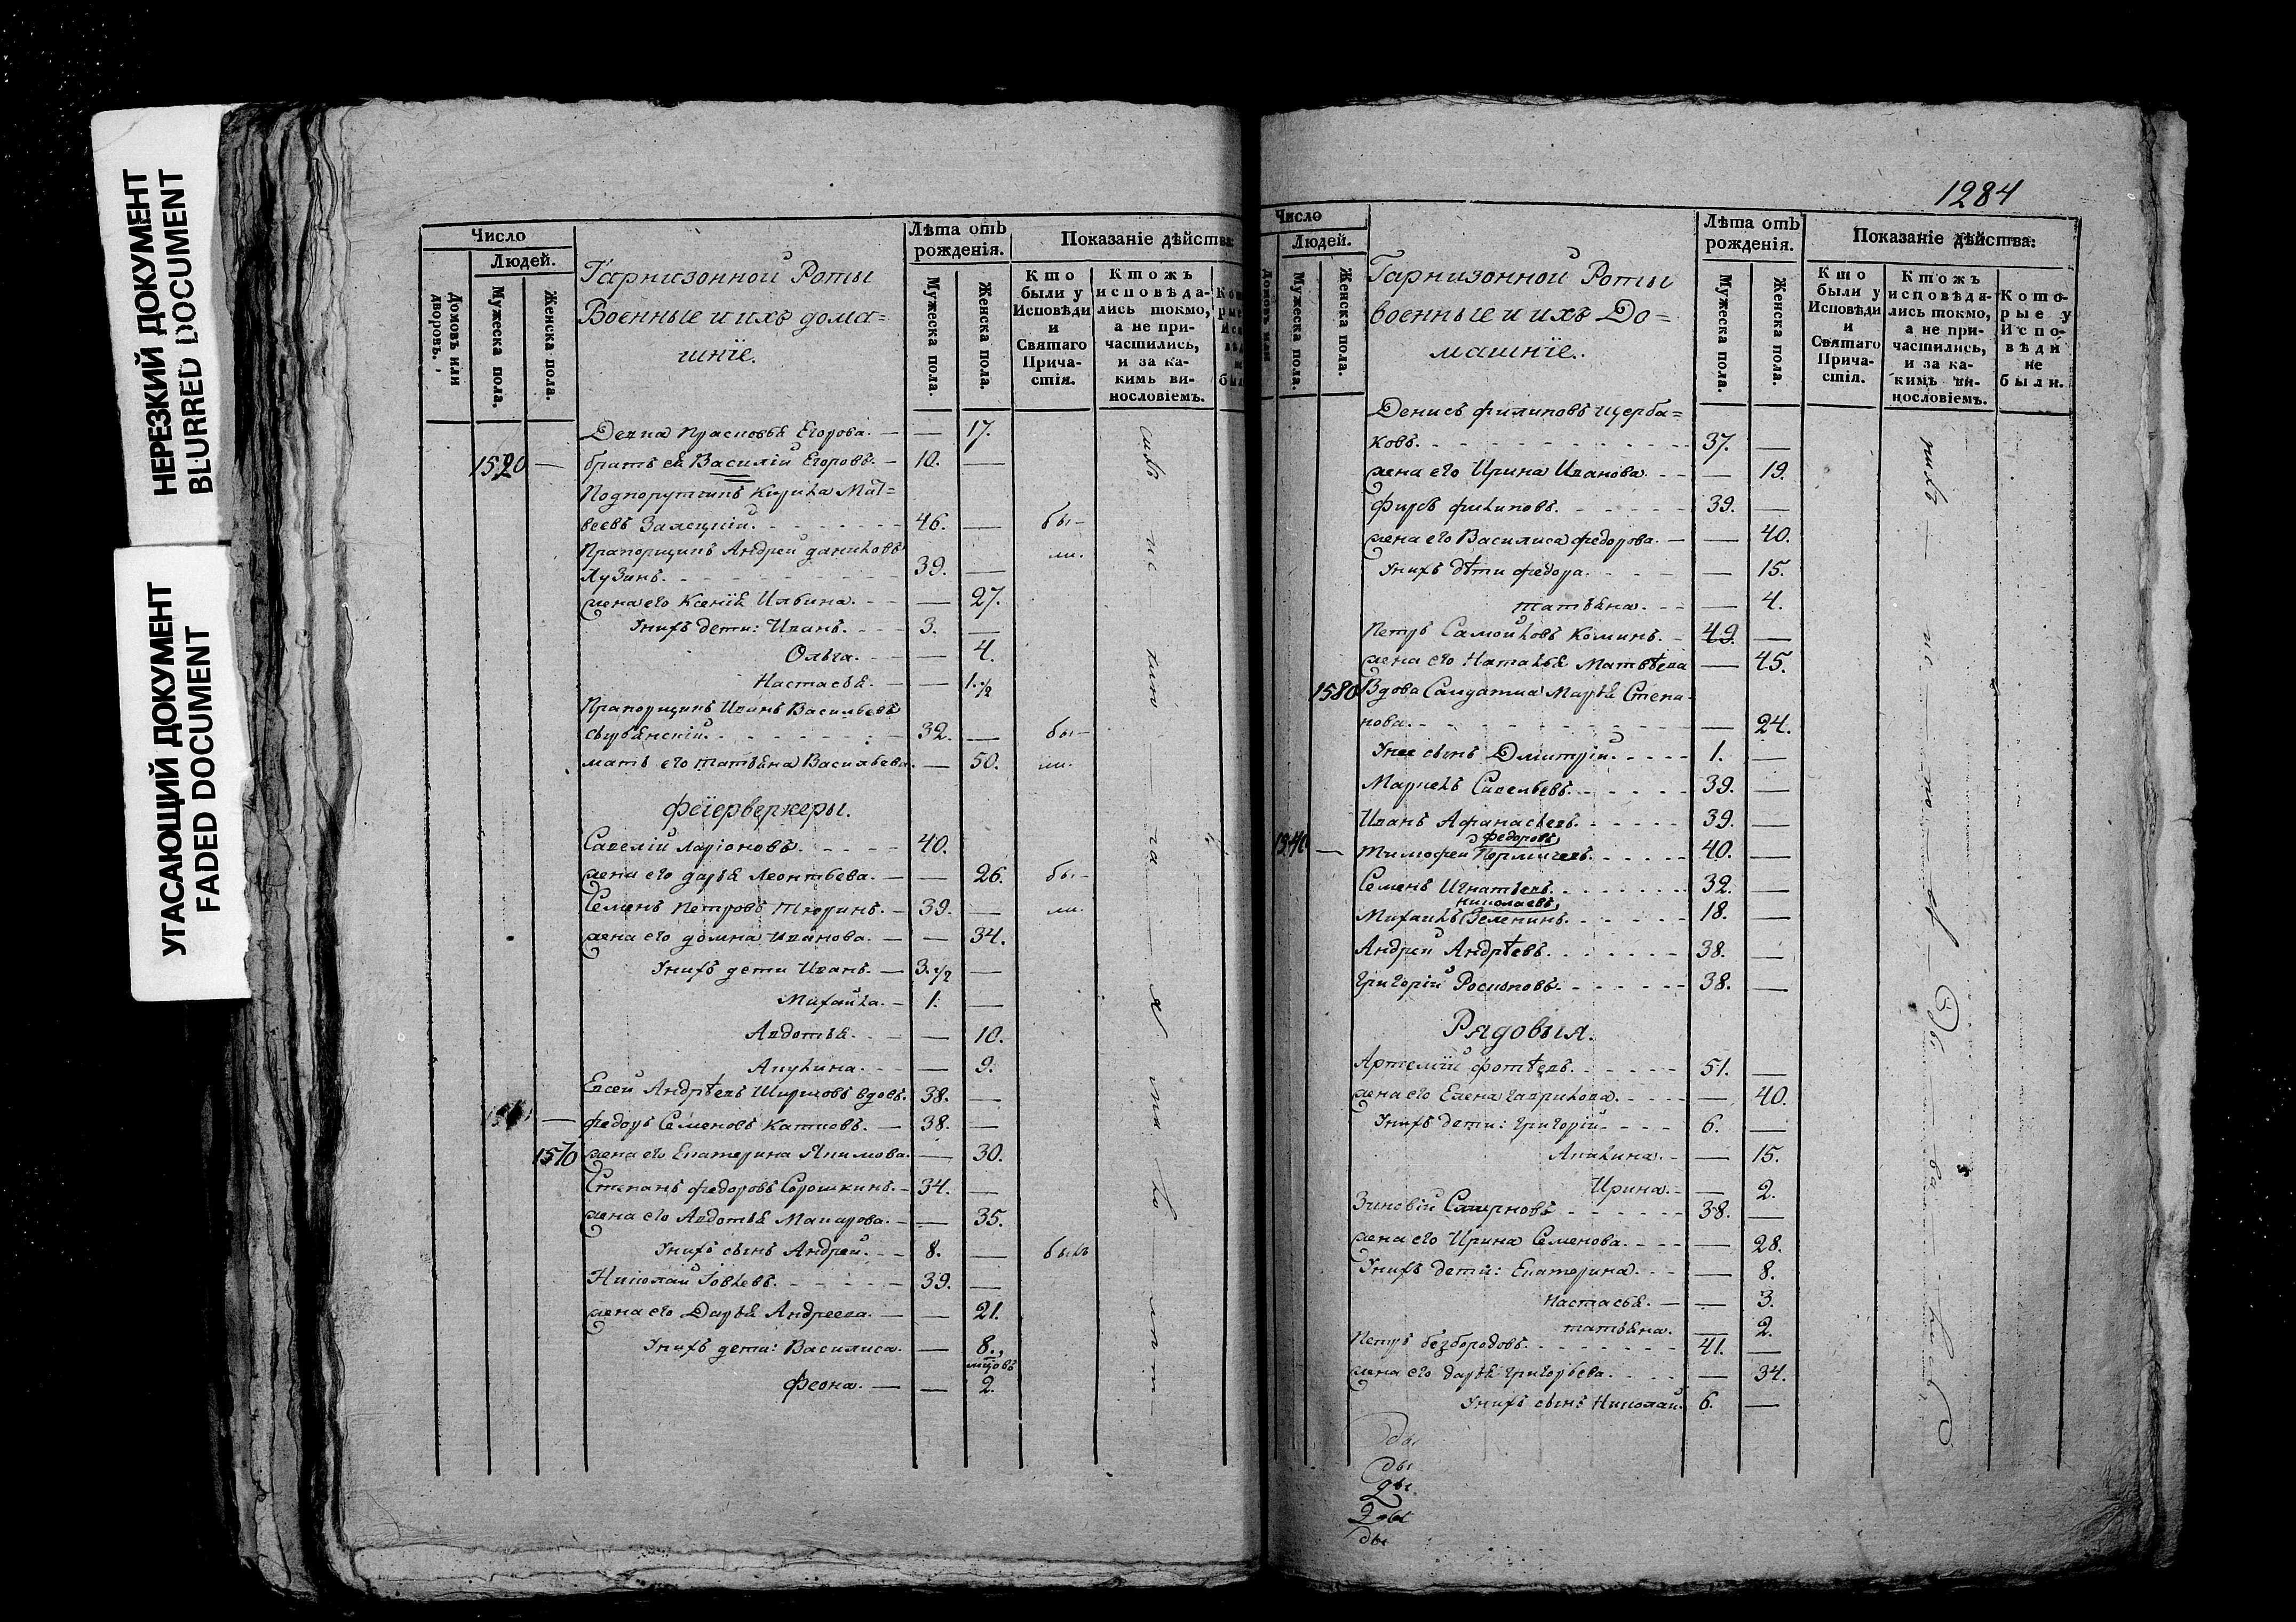 НЕРЕЗКИЙ ДОКУМЕНТ
BLURRED DOCUMENT
УГАСАЮЩИЙ ДОКУМЕНТ
FADED DOCUMENT
Число
Людей.
Домовъ или дворовъ.
Мужеска пола.
Женска пола.
Гарнизонной Роты
Военные и ихъ дома=
шнїе.
Лѣта отъ рожденія.
Мужеска пола.
Женска пола.
Показаніе дѣйства:
Кто были у Исповѣди и Святаго Причастія.
Ктожъ исповѣдались токмо, а не причастились, и за какимъ винословіемъ.
Девка Прасковья Егорова. — — 17.
1520 — братъ ея Василїй Егоровъ. — 10. —
Подпорутчикъ Кирила Мат=
веевъ Залецкїй. 46. — бы-
Прапорщикъ Андрей даниловъ ли.
Лузинъ. 39. —
жена его Ксенїя Ильина. — 27.
Унихъ дети: Иванъ. 3. —
Ольга. — 4.
Настасья. — 1.½
Прапорщикъ Иванъ Васильевъ
32. — бы-
мать его татьяна Васильева. — 50. ли.
фейерверкеры.
Савелїй Ларїоновъ. 40.
жена его дарья Леонтьева. — 26. бы-
Семенъ Петровъ Тюринъ. 39. — ли.
жена его домна Иванова. — 34.
Унихъ дети Иванъ. 3.½ —
Михайла. 1. —
Авдотья. — 10.
Акулина. — 9.
Евсей Андрѣевъ вдовъ. 38. —
федоръ Семеновъ Катковъ. 38. —
1570 жена его Екатерина Якимова. — 30.
Степанъ федоровъ Сорошкинъ. 34. —
жена его Авдотья Макарова. — 35.
Унихъ сынъ Андрей. 8. — былъ
Николай Іовлевъ. 39. —
жена его Дарья Андреева. — 21.
Унихъ дети: Василиса. — 8.
мцовъ
Феона. — 2.
1284
Число
Людей.
Мужеска пола.
Женска пола.
Гарнизонной Роты
военные и ихъ До=
машнїе.
Лѣта отъ рожденія.
Мужеска пола.
Женска пола.
Показаніе дѣйства:
Кто были у Исповѣди и Святаго Причастія.
Ктожъ исповѣдались токмо, а не причастились, и за какимъ винословіемъ.
Которые у Исповѣди не были.
Денисъ филиповъ щерба=
ковъ. 37. —
жена его Ирина Иванова — 19.
Фирсъ филиповъ. 39. —
жена его Василиса федорова. — 40.
Унихъ дѣти федора. — 15.
татьяна. — 4.
Петръ Самойловъ Коминъ. 49. —
жена его Наталья Матвѣева — 45.
1580 Вдова Салдатка Марья Степа-
нова. — 24.
Унее сынъ Дмитрїй. 1. —
Маркелъ Савельевъ. 39. —
Иванъ Афанасьевъ. 39. —
федоровъ
Тимофей 40. —
Семенъ Игнатьевъ. 32. —
николаевъ
Михаилъ Зеленинъ. 18. —
Андрей Андрѣевъ. 38. —
Григорїй 38. —
Рядовыя.
Артемїй фотѣевъ. 51. —
жена его Елена гаврилова. — 40.
Унихъ дети: григорїй. 6. —
Акилина. — 15.
Ирина. — 2.
Зиновїй Смирновъ 38. —
жена его Ирина Семенова. — 28.
Унихъ дети: Екатерина. — 8.
настасья. — 3.
татьяна. — 2.
Петръ безбородовъ. 41. —
жена его дарья григорьева. — 34.
Унихъ сынъ Николай. 6. —